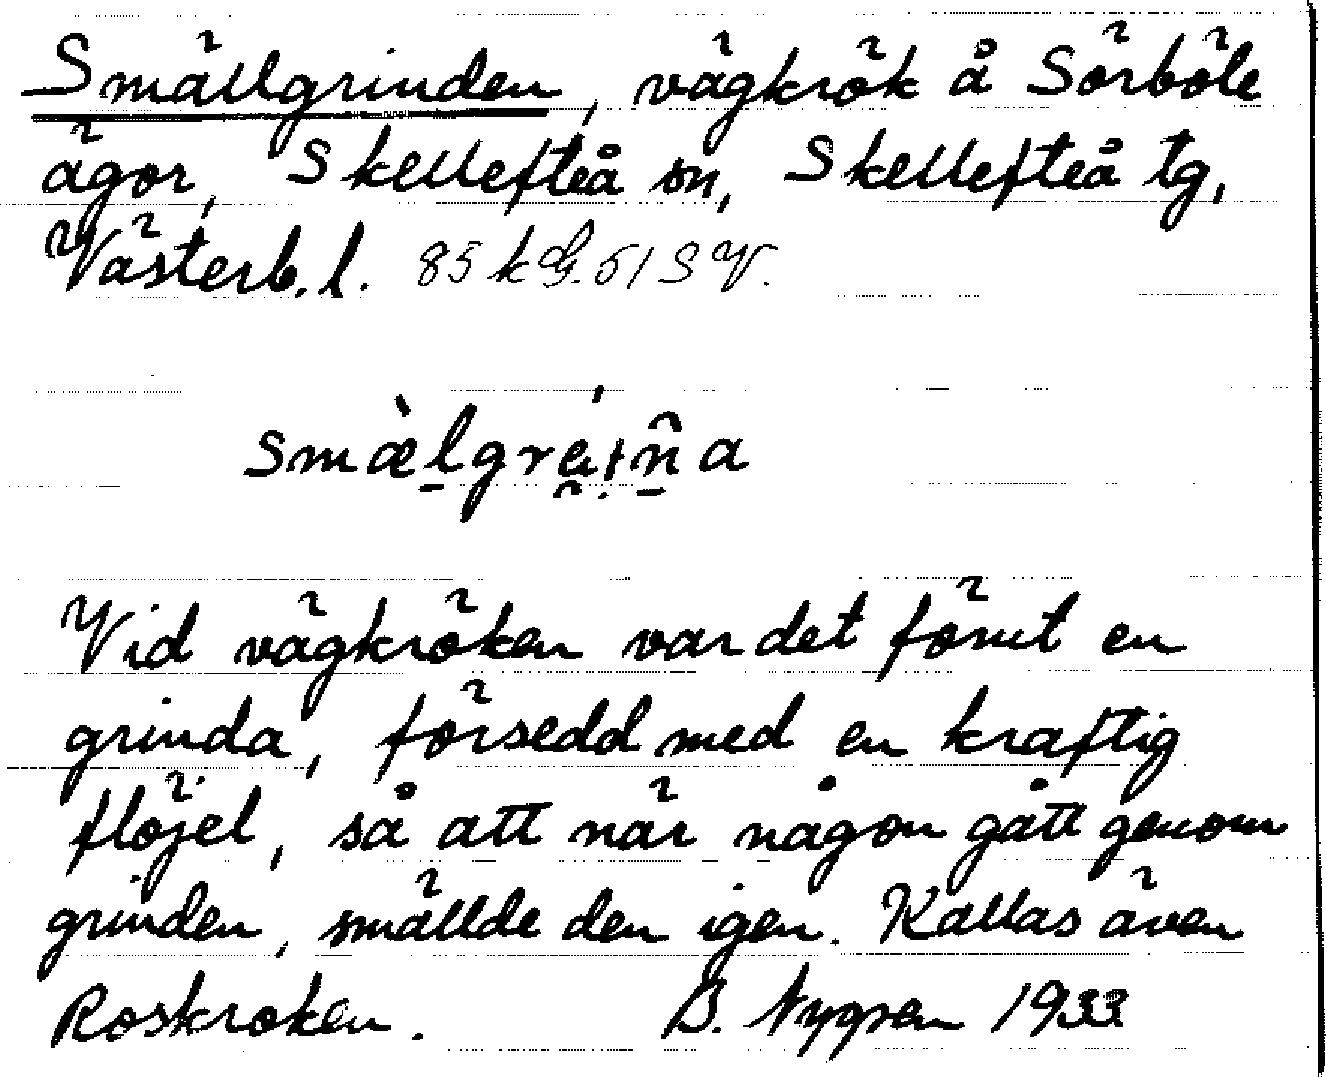 Smällgrinden, vägkrök å Sörböle
ägor, Skellefteå sn, Skellefteå tg,
Västerb. l. 85 k G. 51 S V.
Vid vägkröken var det förut en
grinda, försedd med en kraftig
flöjel, så att när någon gått genom
grinden, smällde den igen. Kallas även
Roskroken. B. Nygren 1933